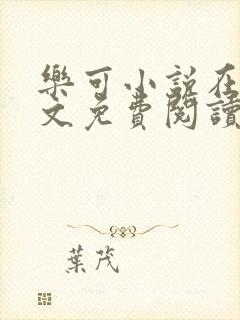 樂可小說在
文免費閱讀
葉茂